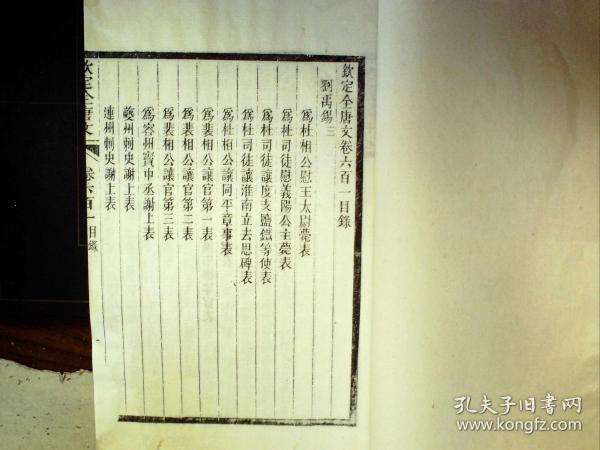 欽定全唐文卷六百一目錄
劉禹錫三
爲杜相公慰王太尉薨表
爲杜司徒慰義陽公主薨表
爲杜司徒讓度支鹽鐵等使表
爲杜司徒讓淮南立去思碑表
爲杜相公讓同平章事表
爲裴相公讓官第一表
爲裴相公讓官第二表
爲裴相公讓官第三表
爲容州竇中丞謝上表
夔州刺史謝上表
連州刺史謝上表
欽定全唐文
卷六百一目錄
孔夫子旧书网
www.kongfz.com